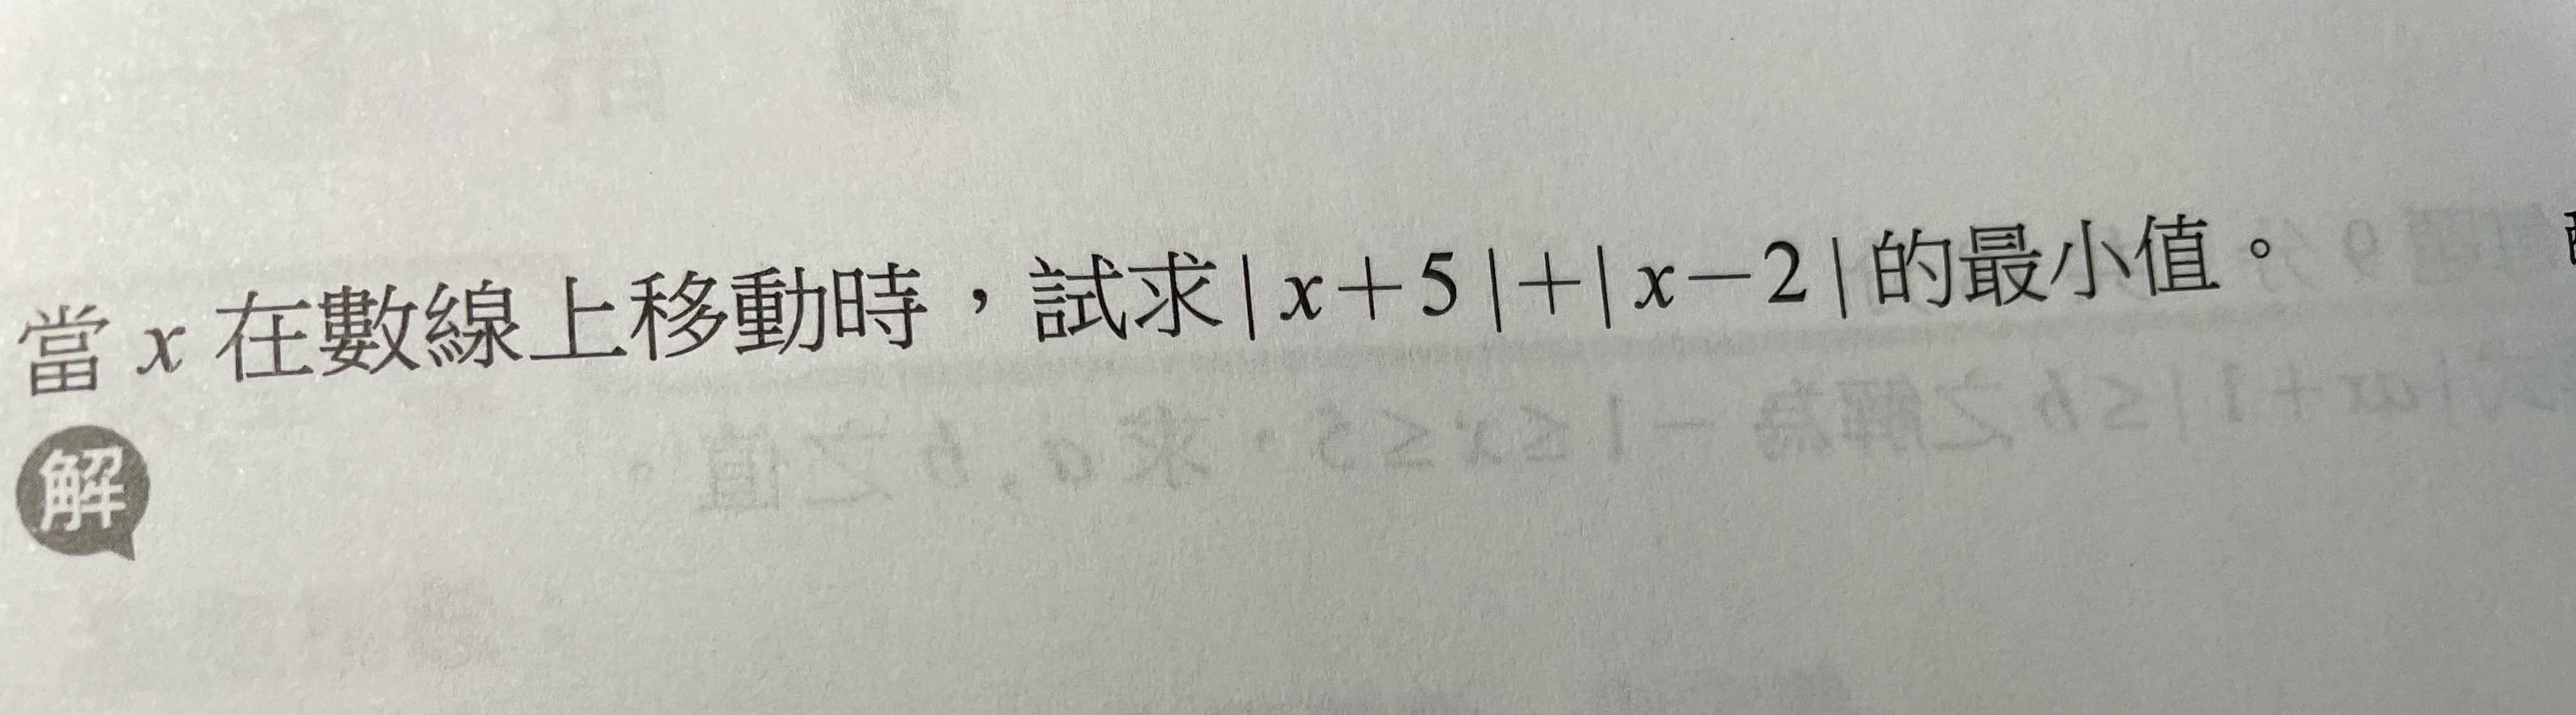 當 x 在數線上移動時，試求| x＋5 |＋| x－2 |的最小值。
解